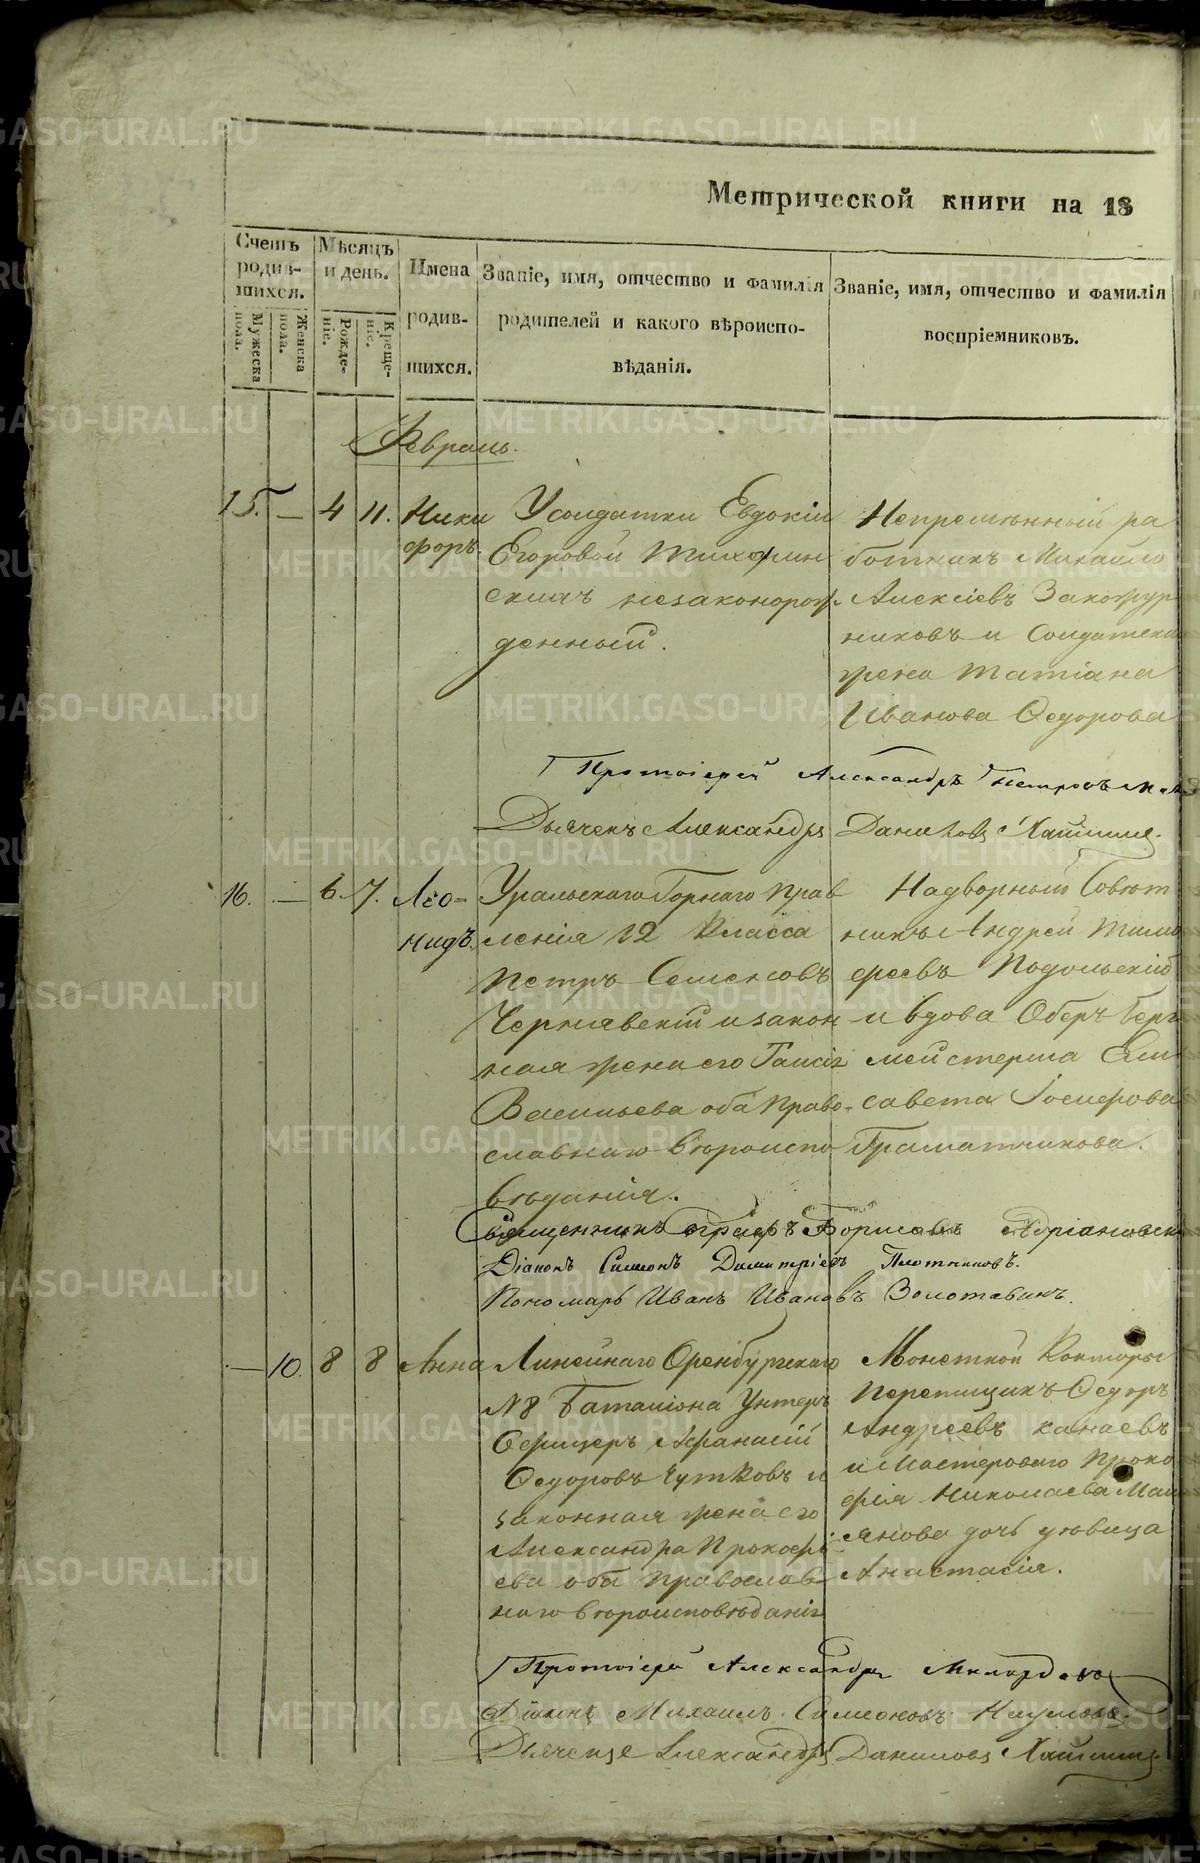 Метрической книги на 18
Счетъ родив- шихся.
Мужеска пола.
Женска пола.
Мѣсяцъ и день.
Рожде- ніе.
Креще- ніе.
Имена родив- шихся.
Званіе, имя, отчество и фамилія
родителей и какого вѣроиспо-
вѣданія.
Званіе, имя, отчество и фамилія
воспріемниковъ.
Февраль.
15. — 4 11. Ники
форъ.
У солдатки Евдокіи
Егоровой
незаконорож-
денный.
Непремѣнный ра
ботникъ Михайло
Алексіевъ
никовъ и Солдатска
жена Татіана
Иванова Ѳедорова
Протоіерей Александръ Петровъ
Дьячекъ Александръ Даниловъ
16. — 6. 7. Лео-
нидъ.
Уральскаго Горнаго Прав
ленія 12 Класса
Петръ Семеновъ
Чернявскій и закон
ная жена его
Васильева оба Право-
славнаго вѣроиспо
вѣданія.
Надворный Совѣт
никъ Андрей Тимо
феевъ Подольскій
и вдова Оберъ Берг
мейстерша Ели
савета
Граматчикова.
Священникъ Борисовъ
Діаконъ Симеонъ Димитріевъ Плотниковъ.
Пономарь Иванъ Ивановъ Золотавинъ.
— 10. 8 8 Анна
Линейнаго Оренбургскаго
№8 Баталіона Унтеръ
Офицеръ Афанасій
Ѳедоровъ и
законная жена его
Александра Прокофі
ева оба православ
наго вѣроисповѣданія
Монетной Конторы
Ѳедоръ
Андреевъ Канаевъ
и Мастероваго Проко
фія Николаева
дочь дѣвица
Анастасія.
Протоіерей Александръ
Діаконъ Михаилъ Симеоновъ Наумовъ.
Александръ Даниловъ
METRIKI.GASO-URAL.RU